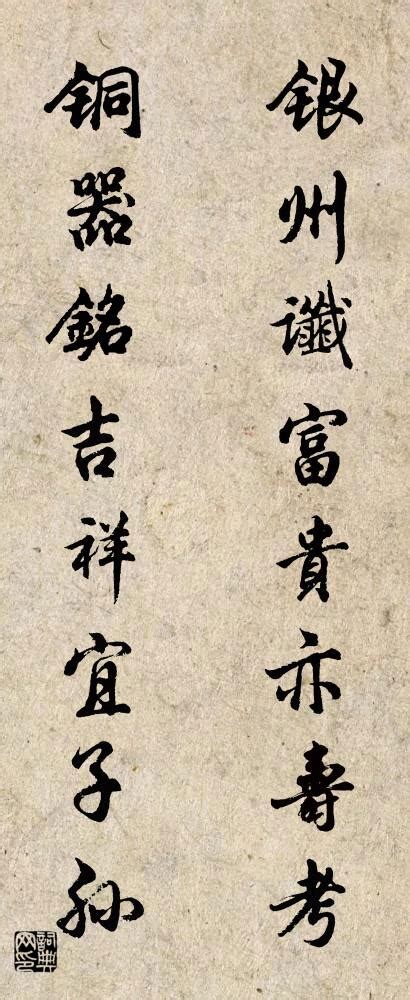 银州谶富貴亦壽考
铜器銘吉祥宜子孙
詞典网印